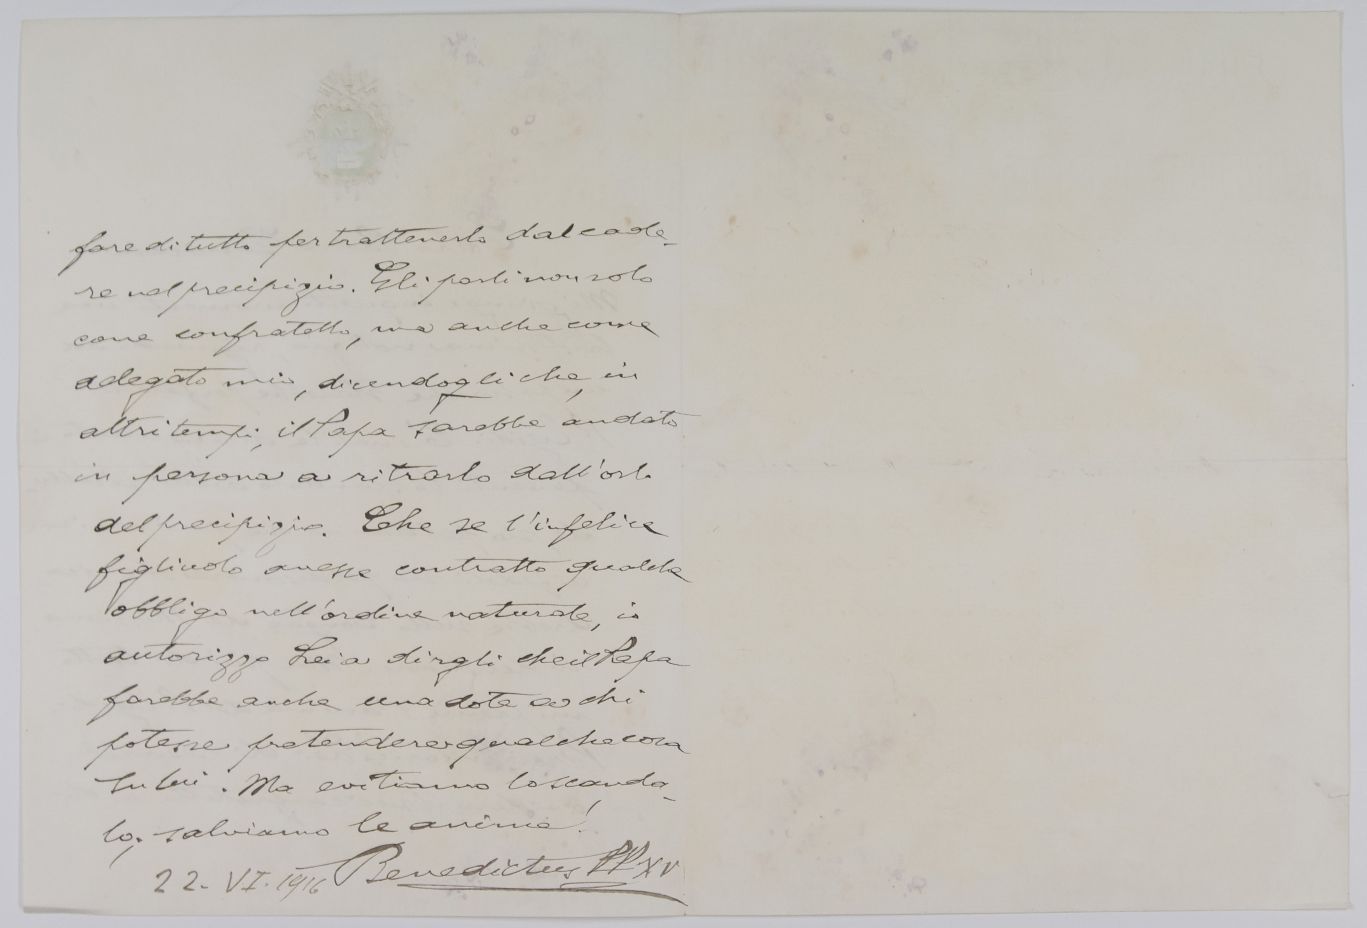 fare di tutto per trattenerlo dal cade-
re nel precipizio. Gli parli non solo
come confratello, ma anche come
delegato mio, dicendogli che, in
altri tempi, il Papa sarebbe andato
in persona a ritrarlo dall'orlo
del precipizio. Che se l'infelice
figliuolo avesse contratto qualche
obbligo nell'ordine naturale, io
autorizzo Lei a dirgli che il Papa
farebbe anche una dote a chi
potesse pretendere qualche cosa
su lui. Ma evitiamo lo scanda-
lo; salviamo le anime!
22. VI. 1916 Benedictus PP XV